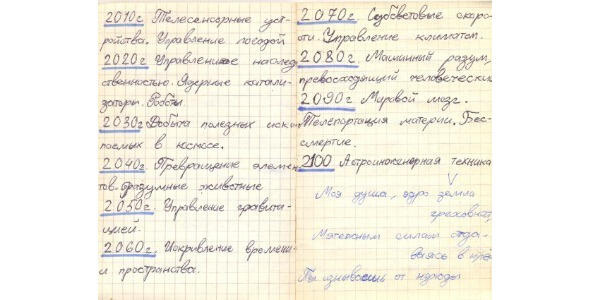 2010г. Телесенсорные уст-
ройства. Управление погодой
2020г. Управление наслед
ственностью. Ядерные катали-
заторы. Роботы.
2030г. Добыча полезных иско
паемых в космосе.
2040г. Превращение элемен
тов. Разумные животные
2050г. Управление гравита-
цией.
2060г. Искривление времени
и пространства.
2070г. Субсветовые скоро
сти. Управление климатом.
2080г. Машинный разум,
превосходящий человеческий
2090г. Мировой мозг.
Телепортация материи. Бес-
смертие.
2100 Астроинженерная техника
Моя душа, ядро земли
греховной
Мятежным силам отда-
ваясь в
Ты изнываешь от нужды